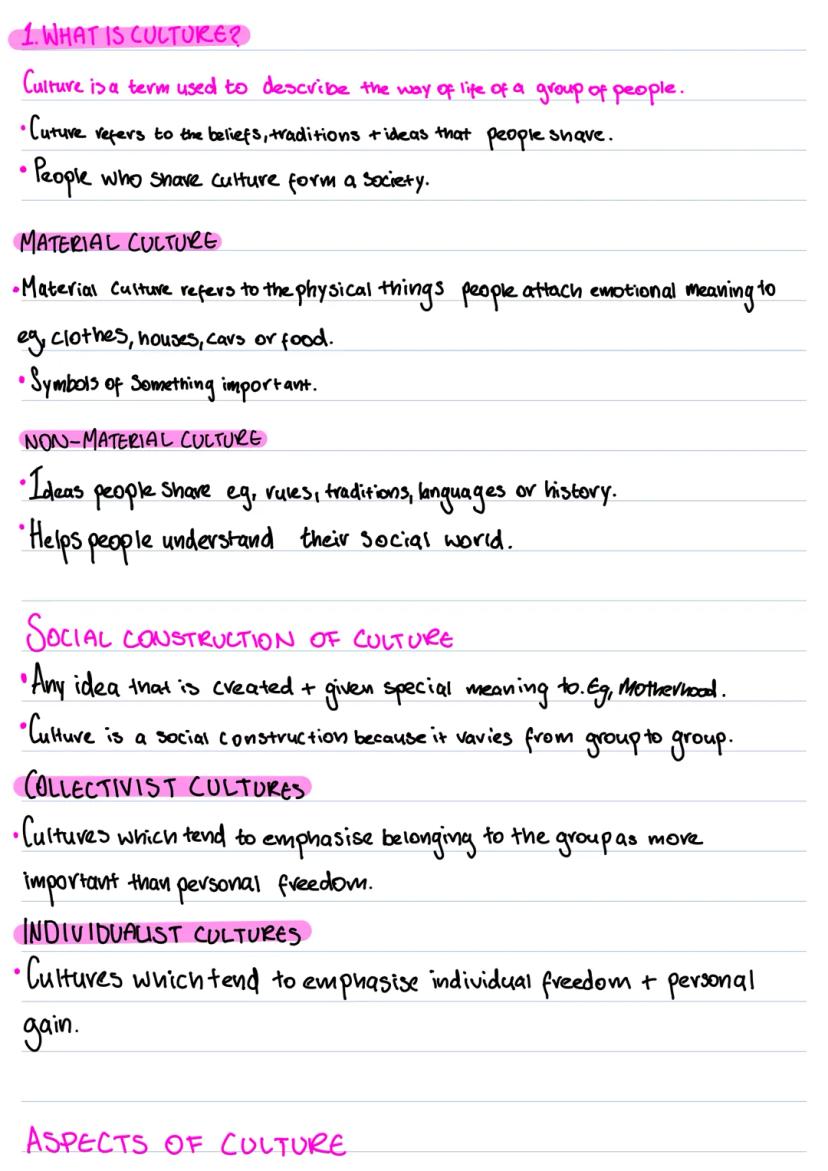 1. WHAT IS CULTURE?
Culture is a term used to describe the way of life of a group of people.
• Cuture refers to the beliefs, traditions + ideas that people share.
• People who share culture form a society.
MATERIAL CULTURE
• Material culture refers to the physical things people attach emotional meaning to
eg, clothes, houses, cars or food.
• Symbols of something important.
NON-MATERIAL CULTURE
• Ideas people share eg, rules, traditions, languages or history.
• Helps people understand their social world.
SOCIAL CONSTRUCTION OF CULTURE
• Any idea that is created + given special meaning to. Eg, Motherhood.
• Culture is a social construction because it varies from group to group.
COLLECTIVIST CULTURES
• Cultures which tend to emphasise belonging to the group as more
important than personal freedom.
INDIVIDUALIST CULTURES
• Cultures which tend to emphasise individual freedom + personal
gain.
ASPECTS OF CULTURE